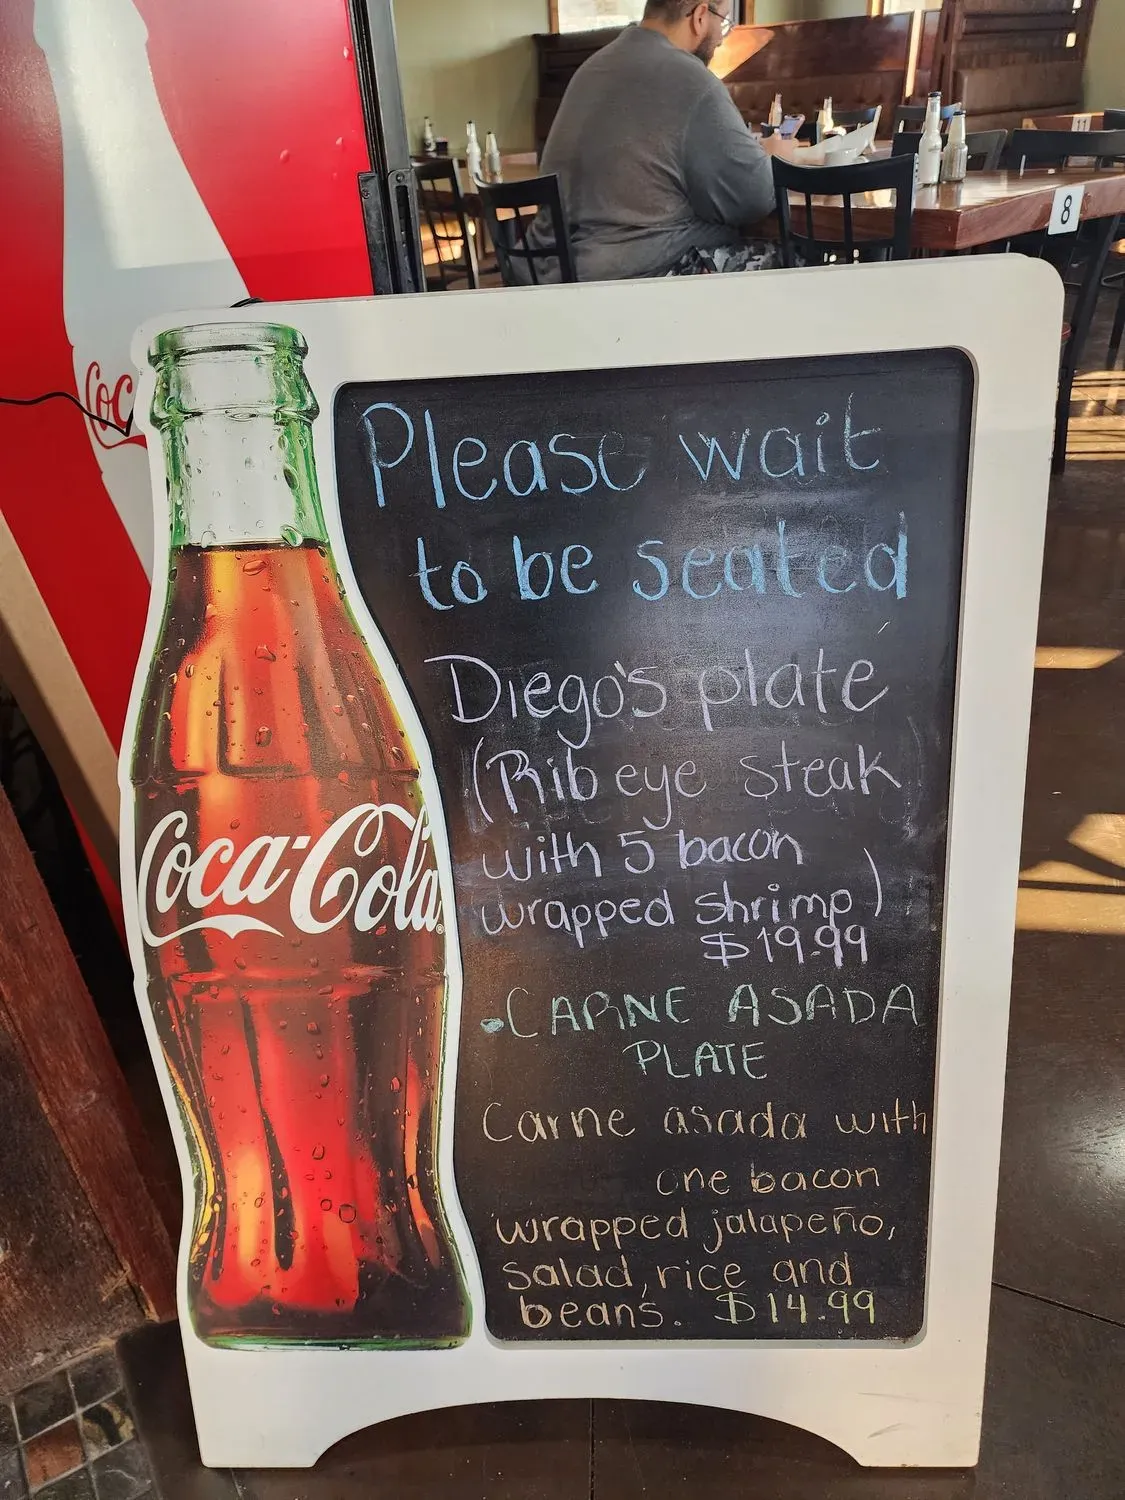 Please wait
to be seated
Diego's plate
(Rib eye steak
with 5 bacon
wrapped shrimp)
$19.99
•CARNE ASADA
PLATE
Carne asada with
one bacon
wrapped jalapeño,
salad, rice and
beans. $14.99
Coca-Cola
Coc
8
11